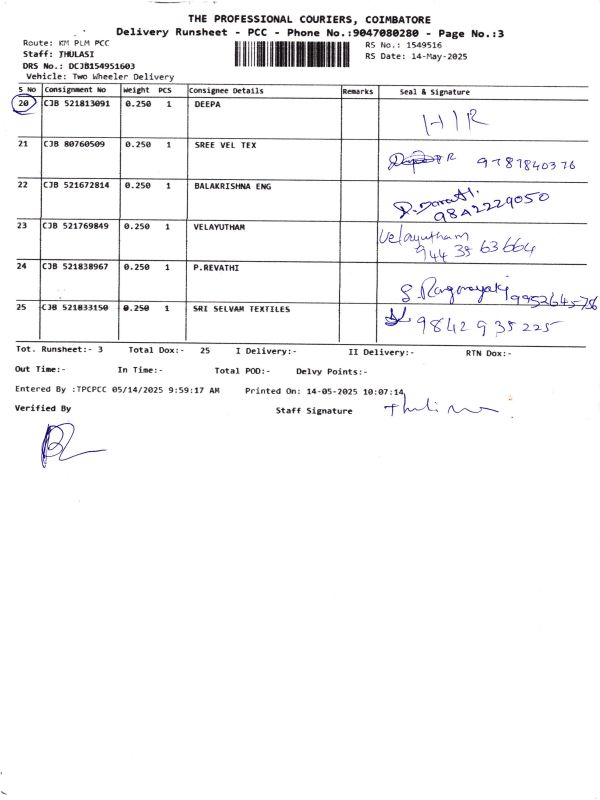 THE PROFESSIONAL COURIERS, COIMBATORE
Delivery Runsheet - PCC - Phone No.:9047080280 - Page No.:3
Route: KM PLM PCC RS No.: 1549516
Staff: THULASI RS Date: 14-May-2025
DRS No.: DCJB154951603
Vehicle: Two Wheeler Delivery
S No Consignment No Weight PCS Consignee Details Remarks Seal & Signature
20 CJB 521813091 0.250 1 DEEPA H/R
21 CJB 80760509 0.250 1 SREE VEL TEX 9787840376
22 CJB 521672814 0.250 1 BALAKRISHNA ENG 9842229050
23 CJB 521769849 0.250 1 VELAYUTHAM Velayutham
944 35 63664
24 CJB 521838967 0.250 1 P.REVATHI S. Ranganayaki 9952645756
25 CJB 521833150 0.250 1 SRI SELVAM TEXTILES 9842 9 35 225
Tot. Runsheet:- 3 Total Dox:- 25 I Delivery:- II Delivery:- RTN Dox:-
Out Time:- In Time:- Total POD:- Delvy Points:-
Entered By :TPCPCC 05/14/2025 9:59:17 AM Printed On: 14-05-2025 10:07:14
Verified By Staff Signature